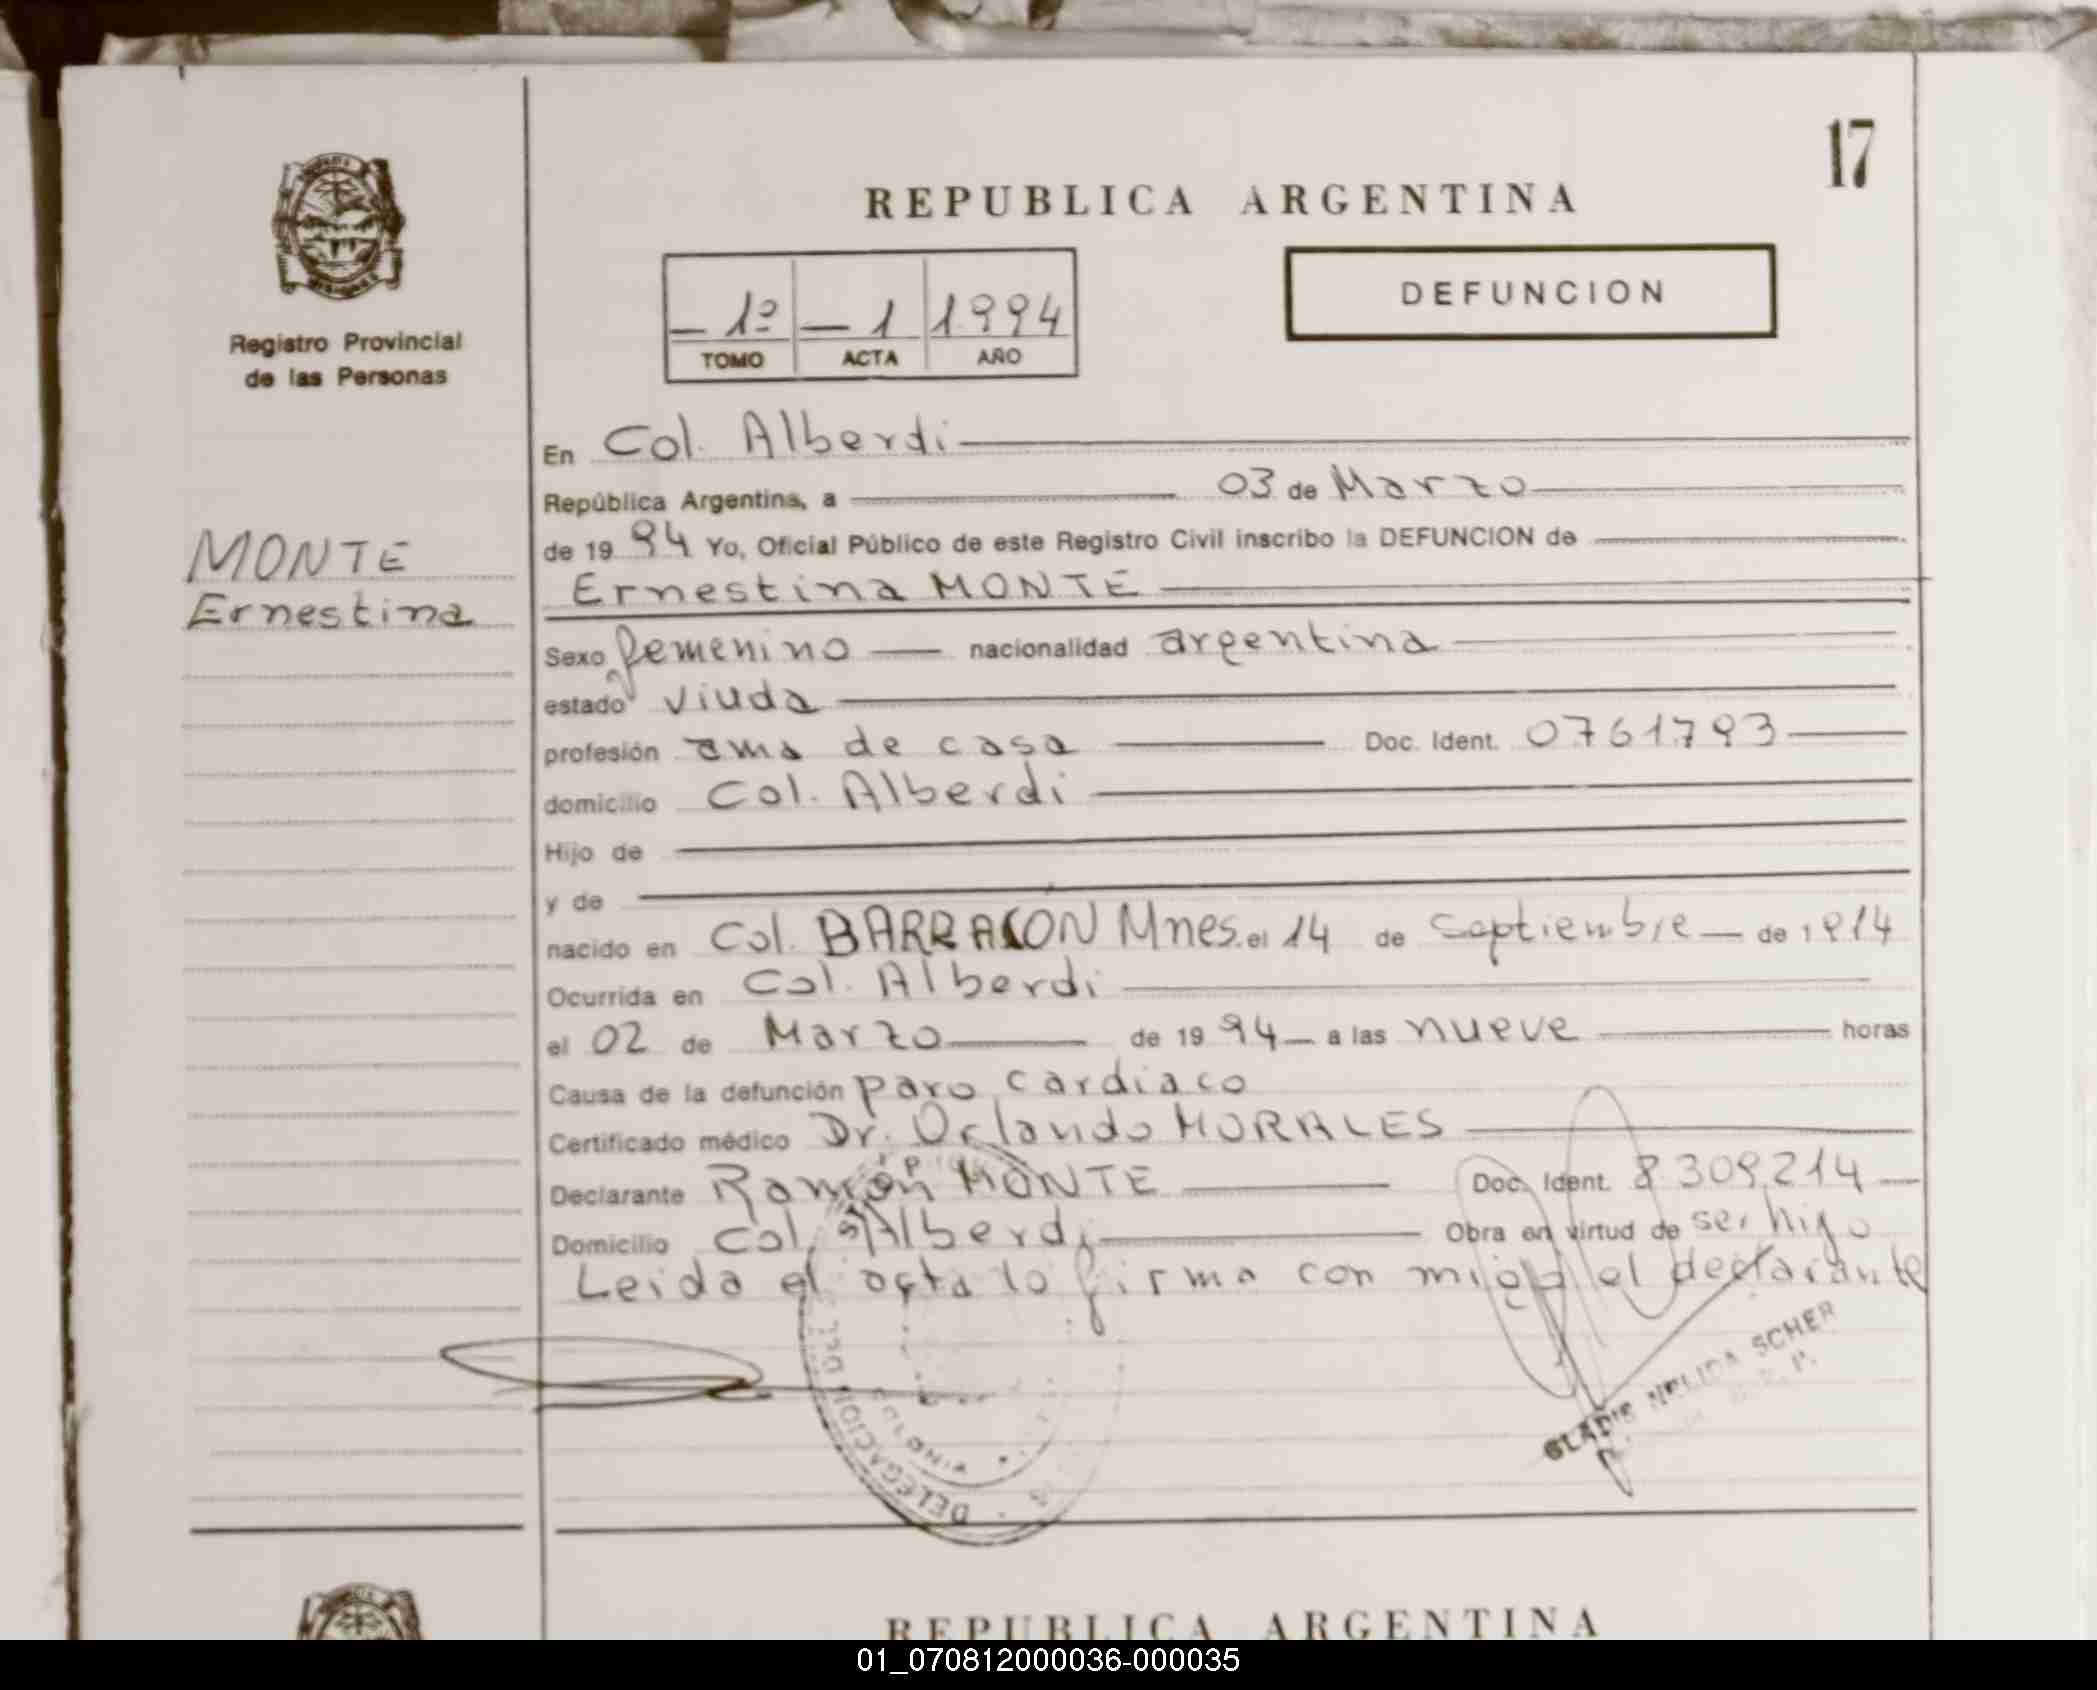 17
REPUBLICA ARGENTINA
DEFUNCION
1º 1 1994
TOMO ACTA AÑO
Registro Provincial
de las Personas
MONTE
Ernestina
En Col. Alberdi
República Argentina, a 03 de Marzo
de 19 94 Yo, Oficial Público de este Registro Civil inscribo la DEFUNCION de
Ernestina MONTE
Sexo femenino nacionalidad argentina
estado viuda
profesión ama de casa Doc. Ident. 0761793
domicilio Col. Alberdi
Hijo de
y de
nacido en Col. BARRACON Mnes. el 14 de Septiembre de 1914
Ocurrida en Col. Alberdi
el 02 de Marzo de 19 94 a las nueve horas
Causa de la defunción paro cardiaco
Certificado médico Dr. Orlando MORALES
Declarante Ramón MONTE Doc. Ident. 8309214
Domicilio Col. Alberdi Obra en virtud de ser hijo
Leida el acta lo firma con migo el declarante
DELEGACION DEL
GLADIS NELIDA SCHER
REPUBLICA ARGENTINA
01_070812000036-000035